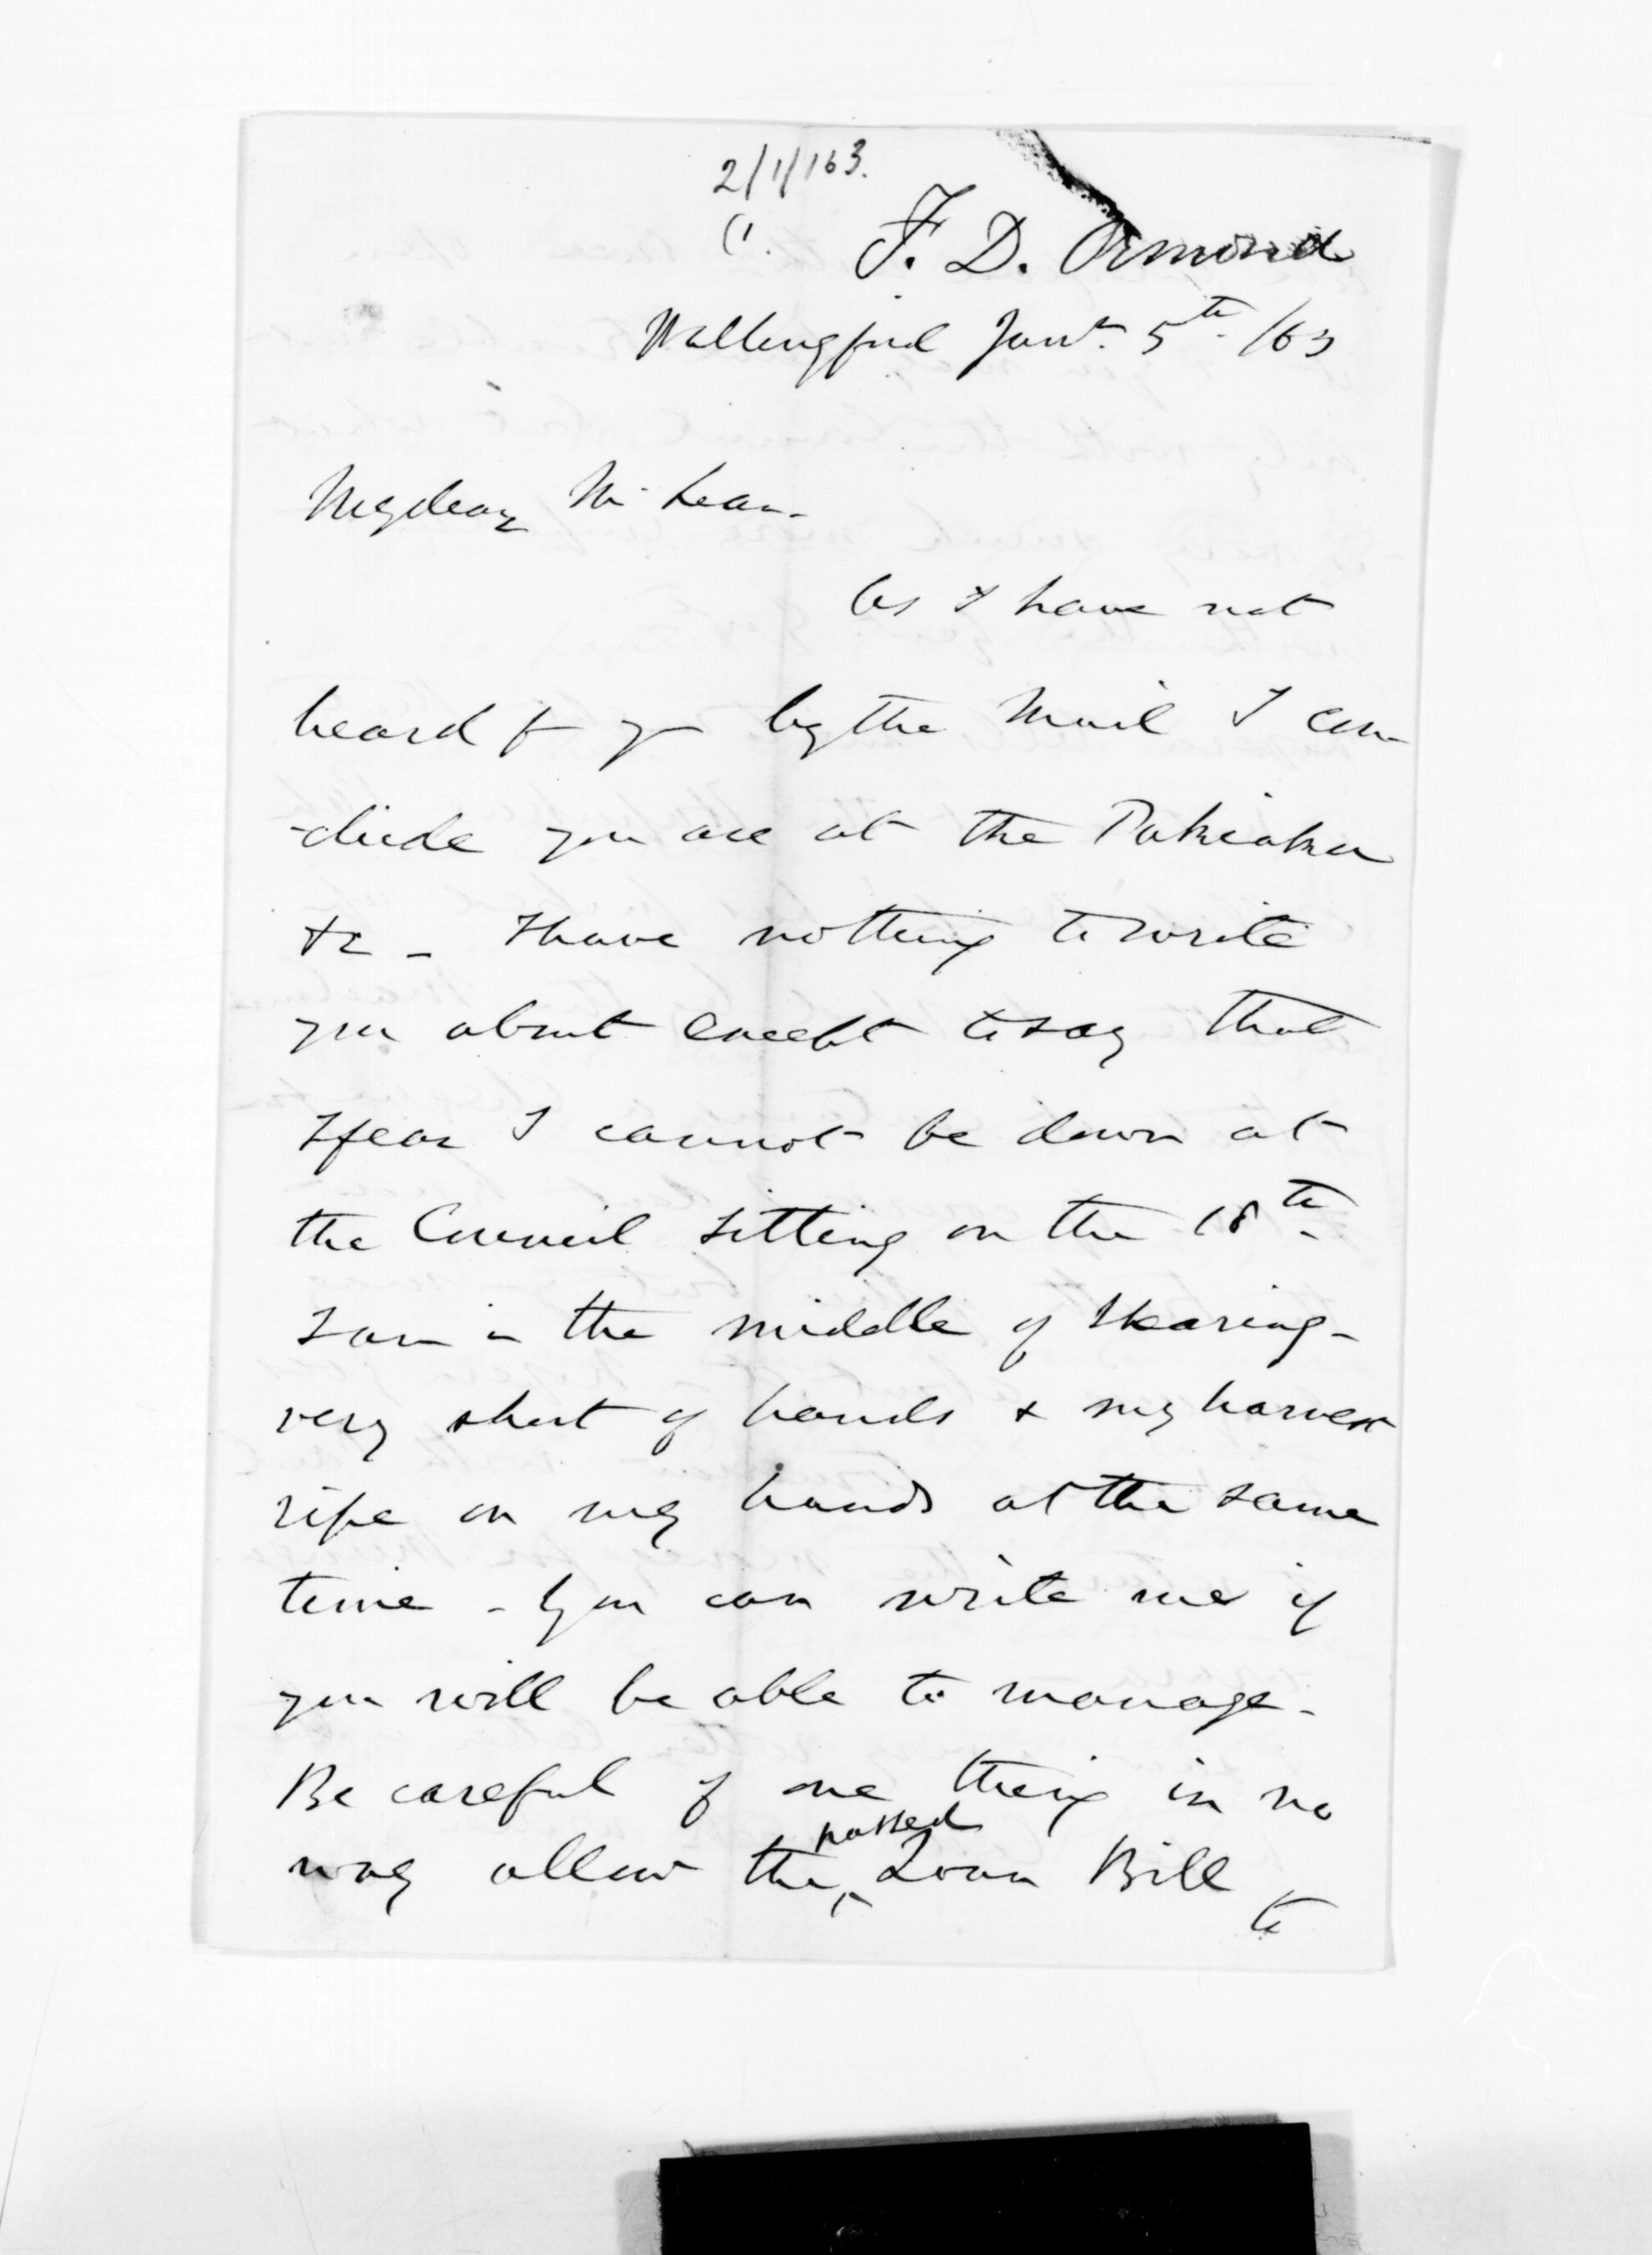 2/1/163.
(1.
J. D. Ormond
Wallingford Jany. 5th /63
My dear McLean.
As I have not
heard fr you by the Mail I con-
-clude you are at the Pakiaka
&c - I have nothing to write
you about except to say that
I fear I cannot be down at
the Council sitting on the 18th.
I am in the middle of shearing -
very short of hands & my harvest
ripe on my hands at the same
time - You can write me if
you will be able to manage -
Be careful of one thing in no
way allow the passed Loan Bill
to